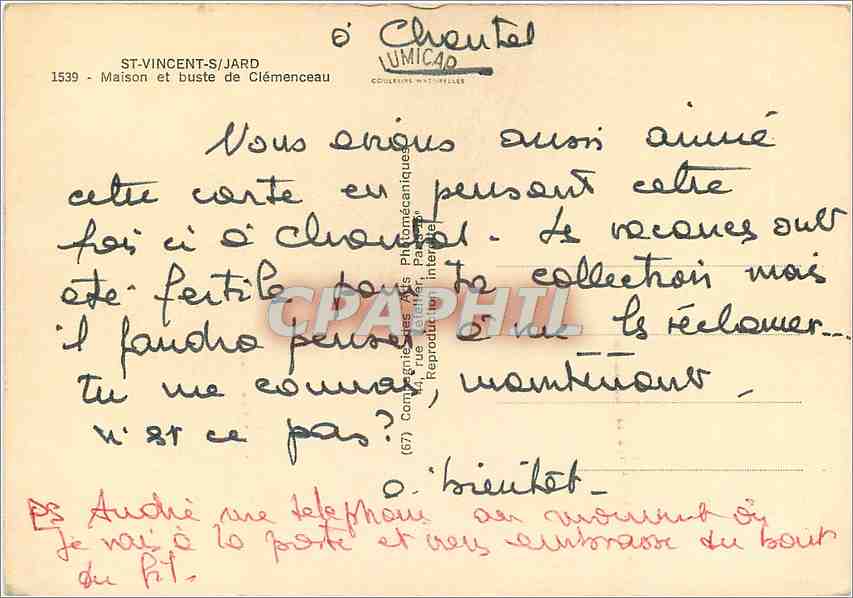 à Chantal
ST-VINCENT-S/JARD
1539 - Maison et buste de Clémenceau
LUMICAP
COULEURS NATURELLES
Nous avions aussi aimé
cette carte en pensant cette
fois ci à Chantal. Les vacances ont
été fertile pour ta collection mais
il faudra penser à me les réclamer...
tu me connais, maintenant,
n'est ce pas?
à bientôt -
PS André me téléphone au moment où
je vais à la poste et vous embrasse du bout
du fil.
(67) Compagnie des Arts Photomécaniques
44, rue Letellier, Paris-15e
Reproduction interdite
CPAPHIL